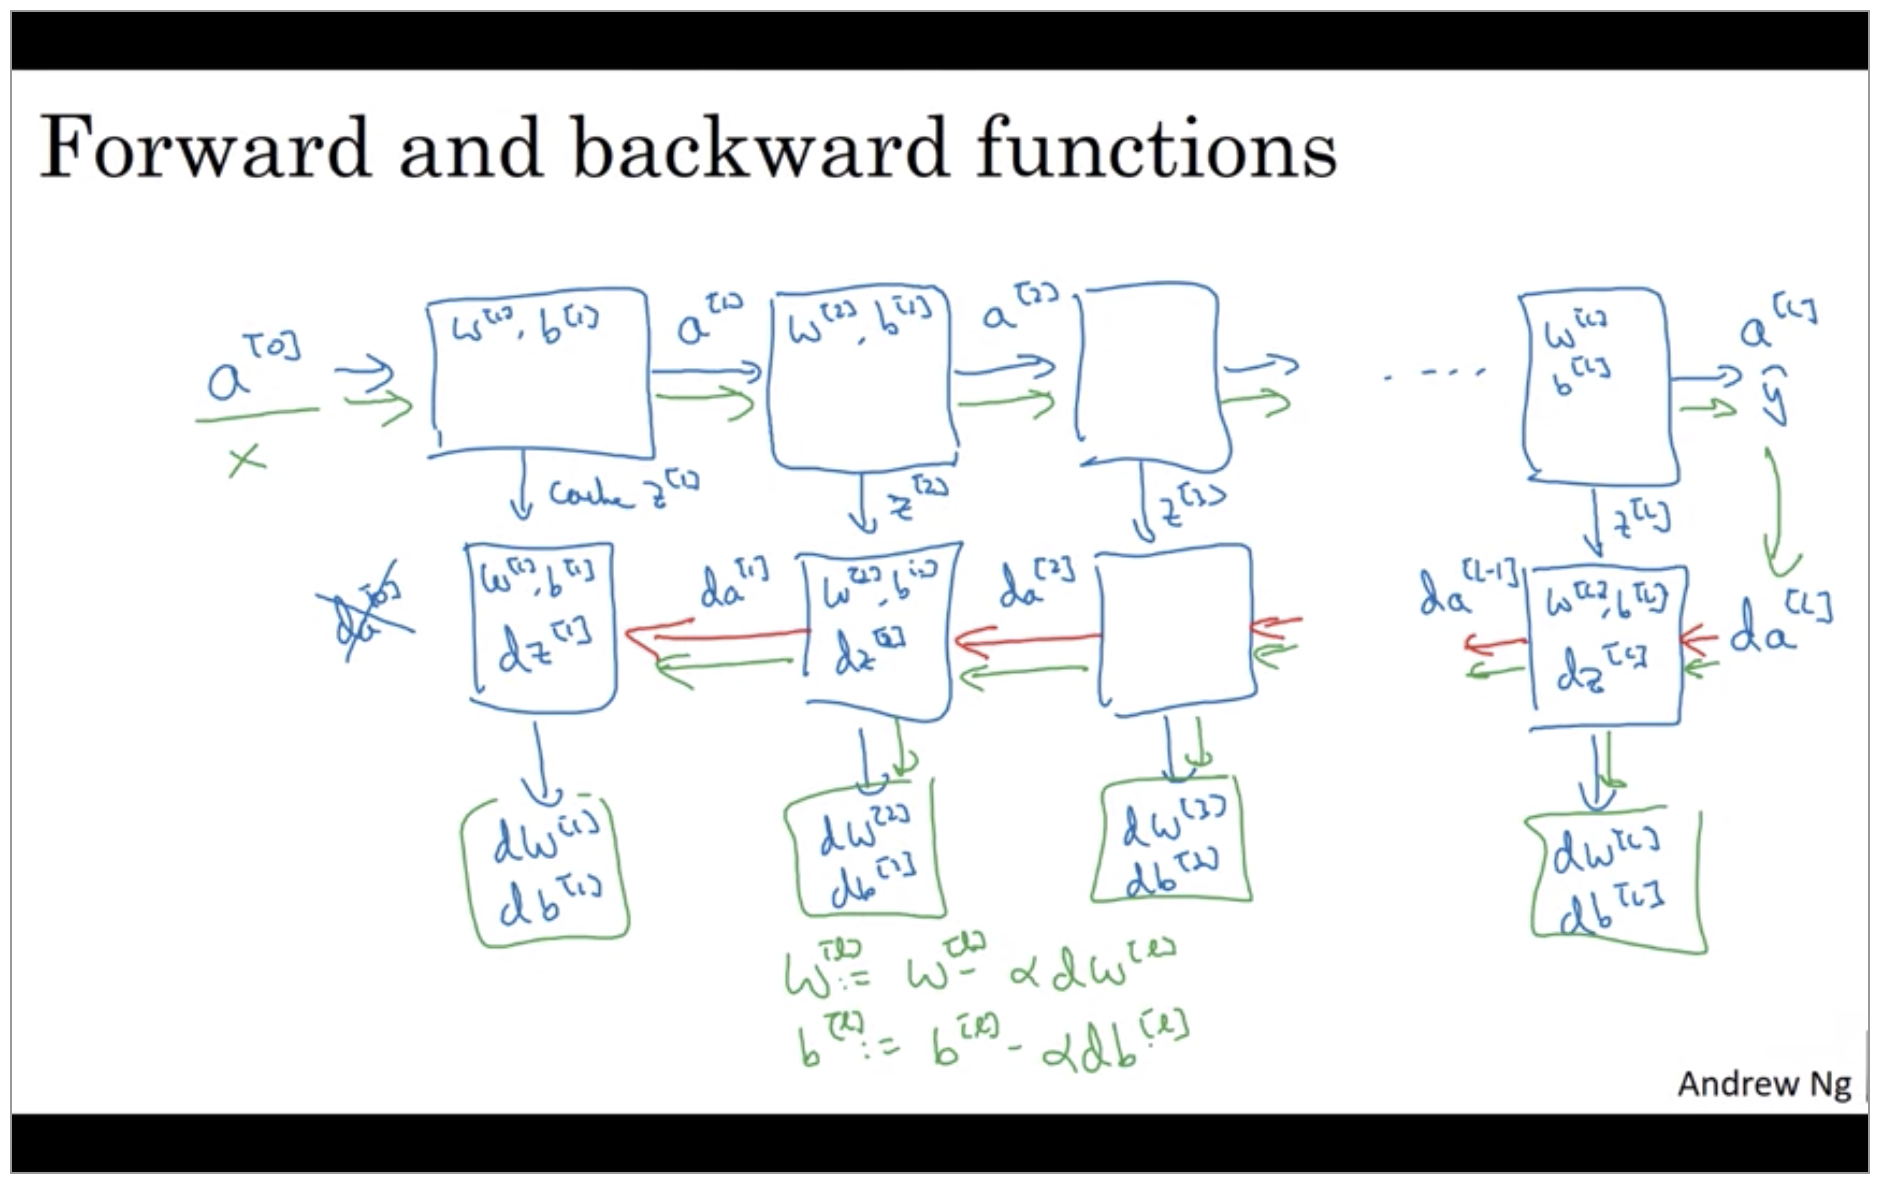 Forward and backward functions
a^[0] w^[1], b^[1] a^[1] w^[2], b^[2] a^[2] .... w^[L] a^[L]
x b^[L] ŷ
cache z^[1] z^[2] z^[3] z^[L]
da^[0] w^[1], b^[1] da^[1] w^[2], b^[2] da^[2] da^[L-1] w^[L], b^[L] da^[L]
dz^[1] dz^[2] dz^[L]
dw^[1] dw^[2] dw^[3] dw^[L]
db^[1] db^[2] db^[3] db^[L]
W^[l] := W^[l] - αdw^[l]
b^[l] := b^[l] - αdb^[l]
Andrew Ng